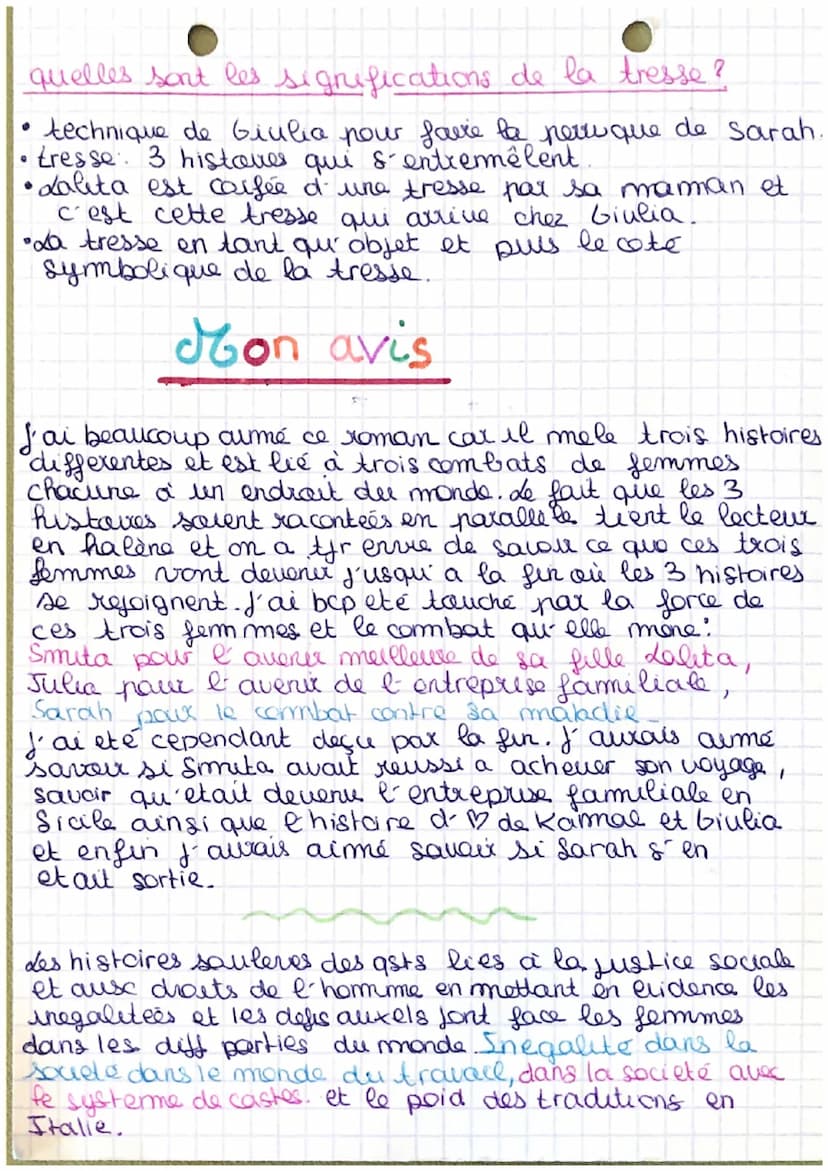 quelles sont les significations de la tresse ?
• technique de Giulia pour faire la perruque de Sarah.
• tresse : 3 histoires qui s'entremêlent.
• Lalita est coifée d'une tresse par sa maman et
c'est cette tresse qui arrive chez Giulia.
• La tresse en tant qu'objet et puis le coté
symbolique de la tresse.
Mon avis
J'ai beaucoup aimé ce roman car il mele trois histoires
differentes et est lié à trois combats de femmes
chacune à un endroit du monde. Le fait que les 3
histoires soient racontées en parallele tient le lecteur
en halène et on a tjr envie de savoir ce que ces trois
femmes vont devenir j'usqu'a la fin où les 3 histoires
se rejoignent. J'ai bcp eté touché par la force de
ces trois femmmes et le combat qu'elle mène :
Smita pour l'avenir meilleure de sa fille Lalita,
Julia pour l'avenir de l'entreprise familiale,
Sarah pour le combat contre sa maladie
J'ai eté cependant deçu par la fin. J'aurais aimé
savoir si Smita avait reussi a achever son voyage,
savoir qu'etait devenu l'entreprise familiale en
Sicile ainsi que l'histoire d'♡ de Kamal et Giulia
et enfin j'aurais aimé savoir si Sarah s'en
etait sortie.
Les histoires souleves des qsts liés à la justice sociale
et aux droits de l'homme en mettant en evidence les
inegalitées et les defis auxels font face les femmes
dans les diff parties du monde. Inegalité dans la
societé dans le monde du travail, dans la societé avec
le systeme de castes. et le poid des traditions en
Italie.